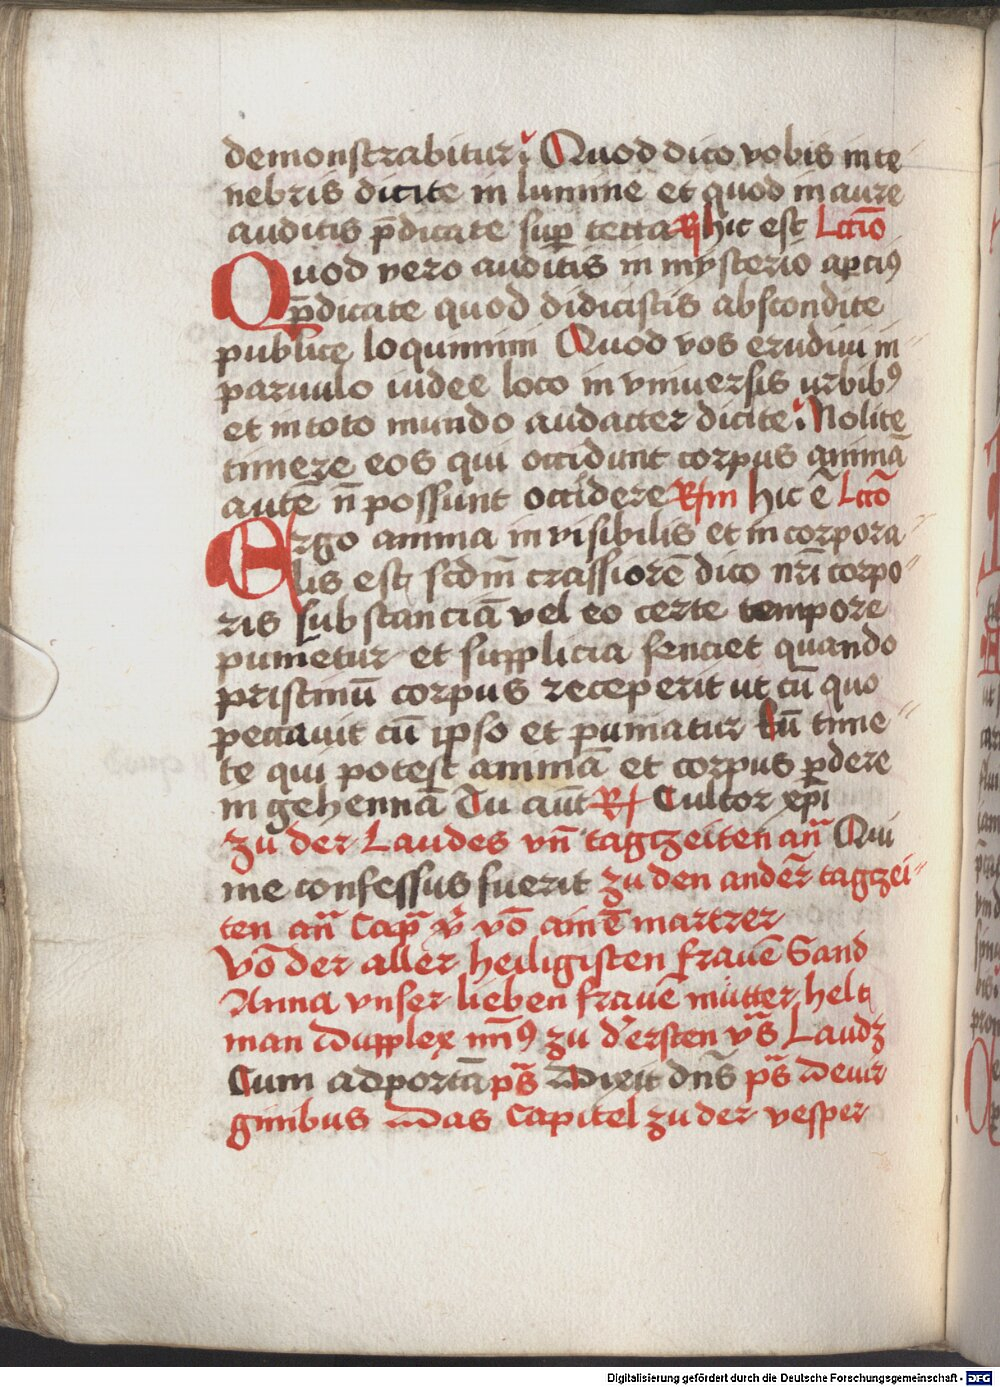 demonstrabitur Quod dico vobis in te
nebris dicite in lumine et quod in aure
auditis p̄dicate suꝑ tecta R hic est Lctiō
Quod vero auditis in mysterio aꝑciꝰ
p̄dicate quod didicistis abscondite
publice loquimini Quod vos erudiui in
paruulo iudee loco in vniuersis urbibꝰ
et in toto mundo audacter dicite Nolite
timere eos qui occidunt corpus animā
autē n̄ possunt occidere Rm hic ē Lctō
Ergo anima invisibilis et in corpora
lis est scdm̄ crassiorē dico nr̄i corpo
ris substanciā vel eo certe tempore
punietur et supplicia senciet quando
pristinū corpus receperit ut cū quo
peccauit cū ipso et puniatur Eū time
te qui potest animā et corpus ꝑdere
in gehennā Tu aūt R Cultor xp̄i
zu der Laudes vn̄ tagczeiten an̄ Qui
me confessus fuerit zu den ander̄ tagczei
ten an̄ Cap̄ v̄ vō ainē martrer
Vō der aller heiligisten frauē Sand
Anna vnser lieben frauē mutter helt
man Dupplex minꝰ zu d'ersten v̄s Laudz
Cum ad portā ps̄ Dixit dn̄s ps̄ De vir
ginibus Das Capitel zu der vesper
Digitalisierung gefördert durch die Deutsche Forschungsgemeinschaft - DFG